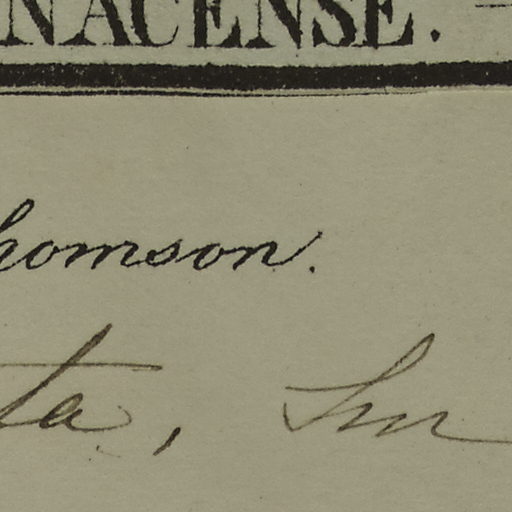 NACENSE.
homson.
ta, Sm